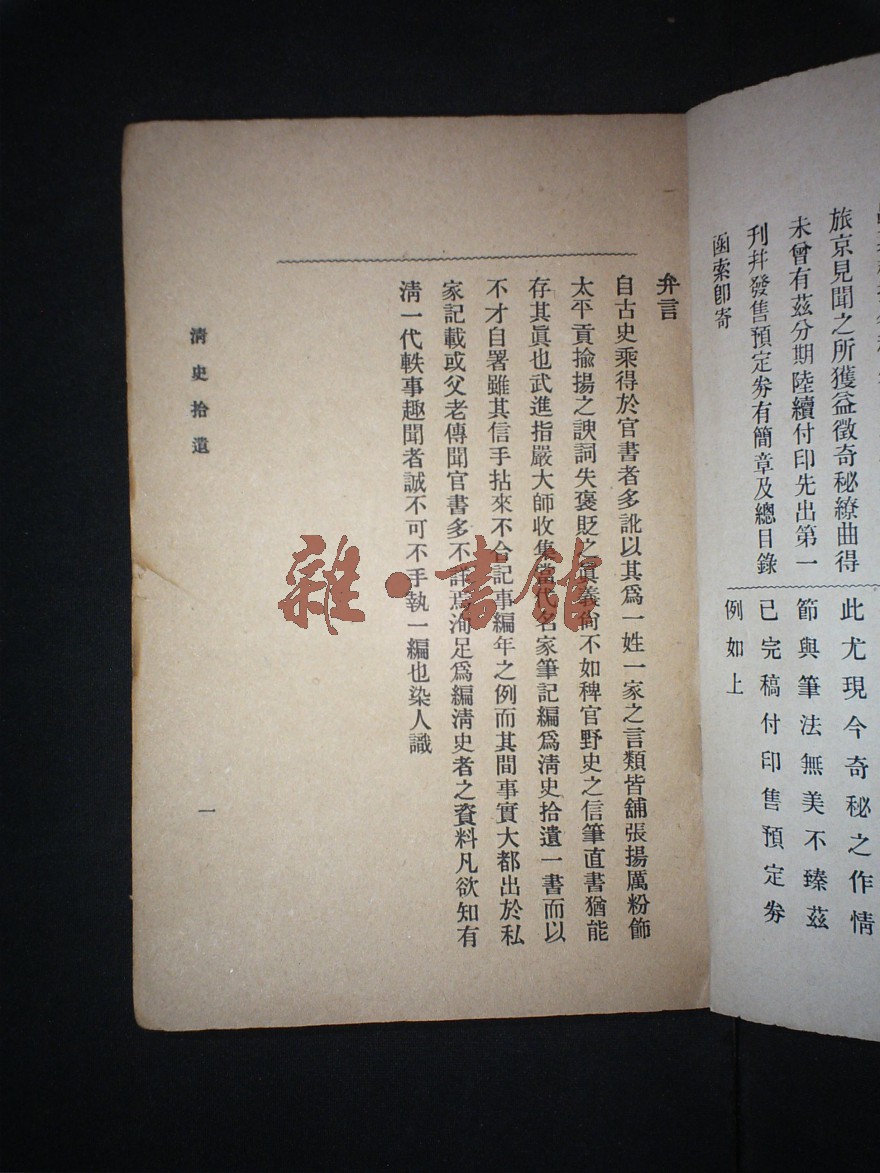 旅京見聞之所獲益徵奇秘繚曲得
未曾有茲分期陸續付印先出第一
刊幷發售預定劵有簡章及總目錄
函索卽寄
此尤現今奇秘之作情
節與筆法無美不臻茲
已完稿付印售預定劵
例如上
弁言
自古史乘得於官書者多訛以其爲一姓一家之言類皆舖張揚厲粉飾
太平貢揄揚之諛詞失褒貶之眞義尙不如稗官野史之信筆直書猶能
存其眞也武進指嚴大師收集當代名家筆記編爲淸史拾遺一書而以
不才自署雖其信手拈來不合記事編年之例而其間事實大都出於私
家記載或父老傳聞官書多不詳焉洵足爲編淸史者之資料凡欲知有
淸一代軼事趣聞者誠不可不手執一編也染人識
淸史拾遺
一
雜·書館